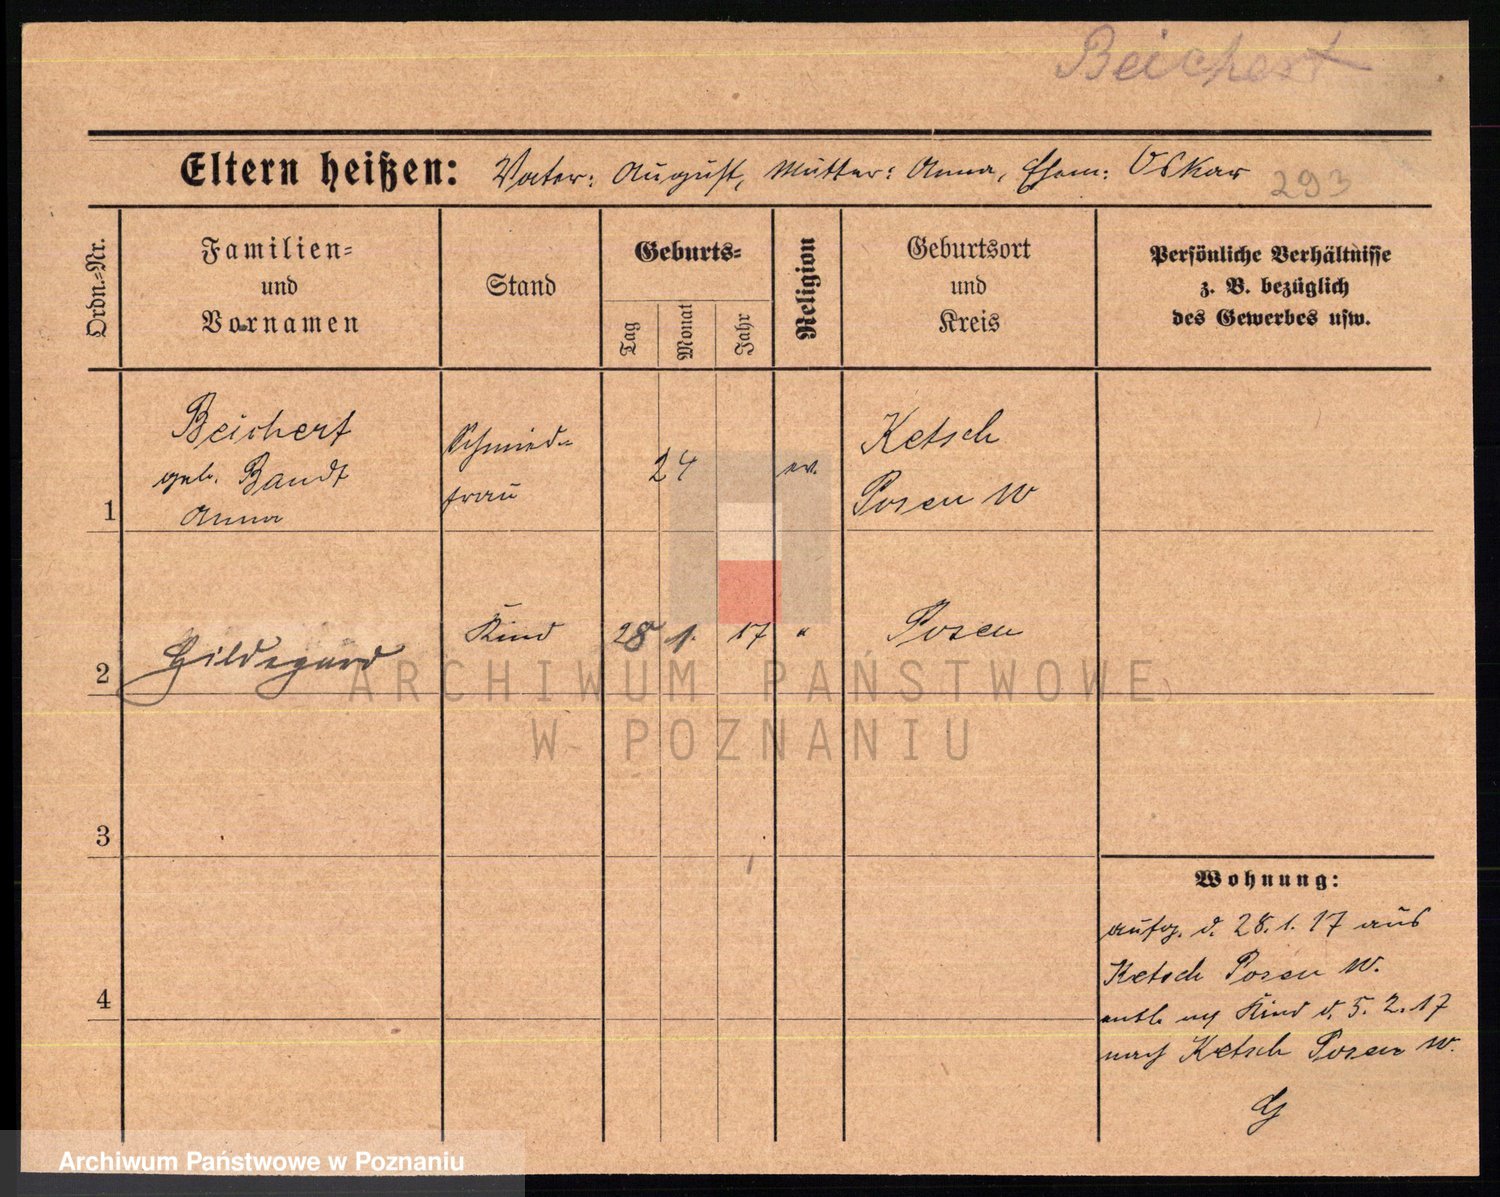 Beichert
Eltern heißen: Vater: August, Mutter: Anna, Ehem: Oskar 293
Ordn.=Nr.
Familien=
und
Vornamen
Stand
Geburts=
Tag
Monat
Jahr
Religion
Geburtsort
und
Kreis
Persönliche Verhältnisse
z. B. bezüglich
des Gewerbes usw.
1
Beichert
geb. Bandt
Anna
Schmied=
frau
24
ev.
Ketsch
Posen W
2
Hildegard
Kind
28 1. 17 "
Posen
ARCHIWUM PAŃSTWOWE
W POZNANIU
3
4
Wohnung:
aufg. d. 28. 1. 17 aus
Ketsch Posen W.
entl. Kind d. 5. 2. 17
nach Ketsch Posen W.
Archiwum Państwowe w Poznaniu